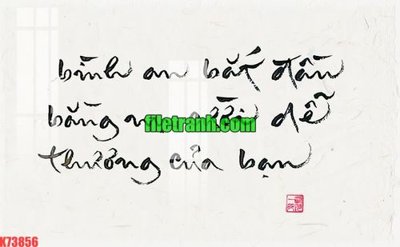 bình an bắt đầu
bằng nụ cười dễ
filetranh.com
thương của bạn
K73856